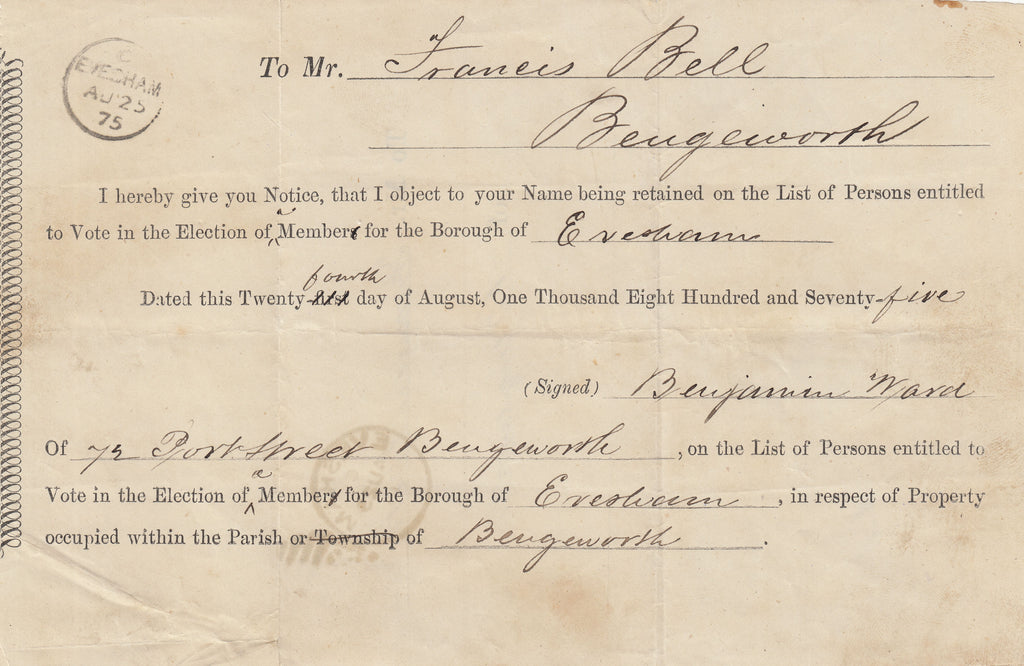 C
EVESHAM
AU 25
75
To Mr. Francis Bell
Bengeworth
I hereby give you Notice, that I object to your Name being retained on the List of Persons entitled
to Vote in the Election of a Member for the Borough of Evesham
fourth
Dated this Twenty- day of August, One Thousand Eight Hundred and Seventy-five
(Signed) Benjamin Ward
Of 72 Port Street Bengeworth, on the List of Persons entitled to
Vote in the Election of a Member for the Borough of Evesham, in respect of Property
occupied within the Parish or Township of Bengeworth.